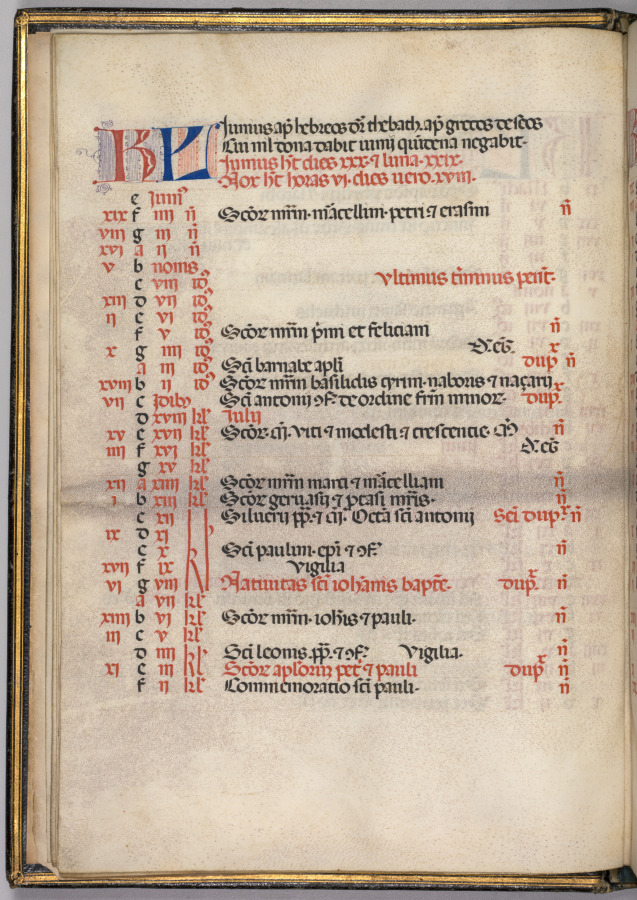 KL Junius ap̄ hebreos dr̄ thebath. ap̄ grecos deseos
Cui ml̄ dona dabit iuni quīdena negabit.
Junius hꝫ dies xxx. ⁊ luna. xxix.
Nox hꝫ horas vi. dies uero. xviii.
e Junii
xix f iiii n̄ Sctōr mr̄m. marcellini. petri ⁊ erasmi n̄
viii g iii n̄
xvi a ii n̄
v b nonis
c viii id' vltimus t̄minus pent̄.
xiii d vii id'
ii e vi id'
f v id' Sctōr mr̄m p̄mi et feliciani n̄
x g iiii id' D. eḡ. x
a iii id' Sc̄i barnabe apl̄i dup n̄
xviii b ii id' Sctōr mr̄m basilidis cyrini. naboris ⁊ naçarij
vii c Idibꝫ Sc̄i antonii ꝯf. de ordine fr̄m minor. dup.
d xviii kl' Julii
xv e xvii kl' Sctōr. m̄. viti ⁊ modesti ⁊ crescentie. m̄ n̄
iiii f xvi kl' D. eḡ
g xv kl'
xii a xiiii kl' Sctōr mr̄m marci ⁊ marcelliani n̄
i b xiii kl' Sctōr geruasii ⁊ ptasi mr̄is. n̄
c xii Siluerii pp̄. ⁊ m̄. Octā sc̄i antonii Sc̄i dup. n̄
ix d xi
e x Sc̄i paulini. epī ⁊ ꝯf. n̄
xvii f ix Vigilia
vi g viii Natiuitas sc̄i iohānis bapt̄e. dup. n̄
a vii kl'
xiiii b vi kl' Sctōr mr̄m. ioh̄is ⁊ pauli. n̄
iii c v kl'
d iiii kl' Sc̄i leonis. pp̄. ⁊ ꝯf. Vigilia. n̄
xi e iii kl' Sctōr aplōrum pet' ⁊ pauli dup n̄
f ii kl' Commemoratio sc̄i pauli. n̄